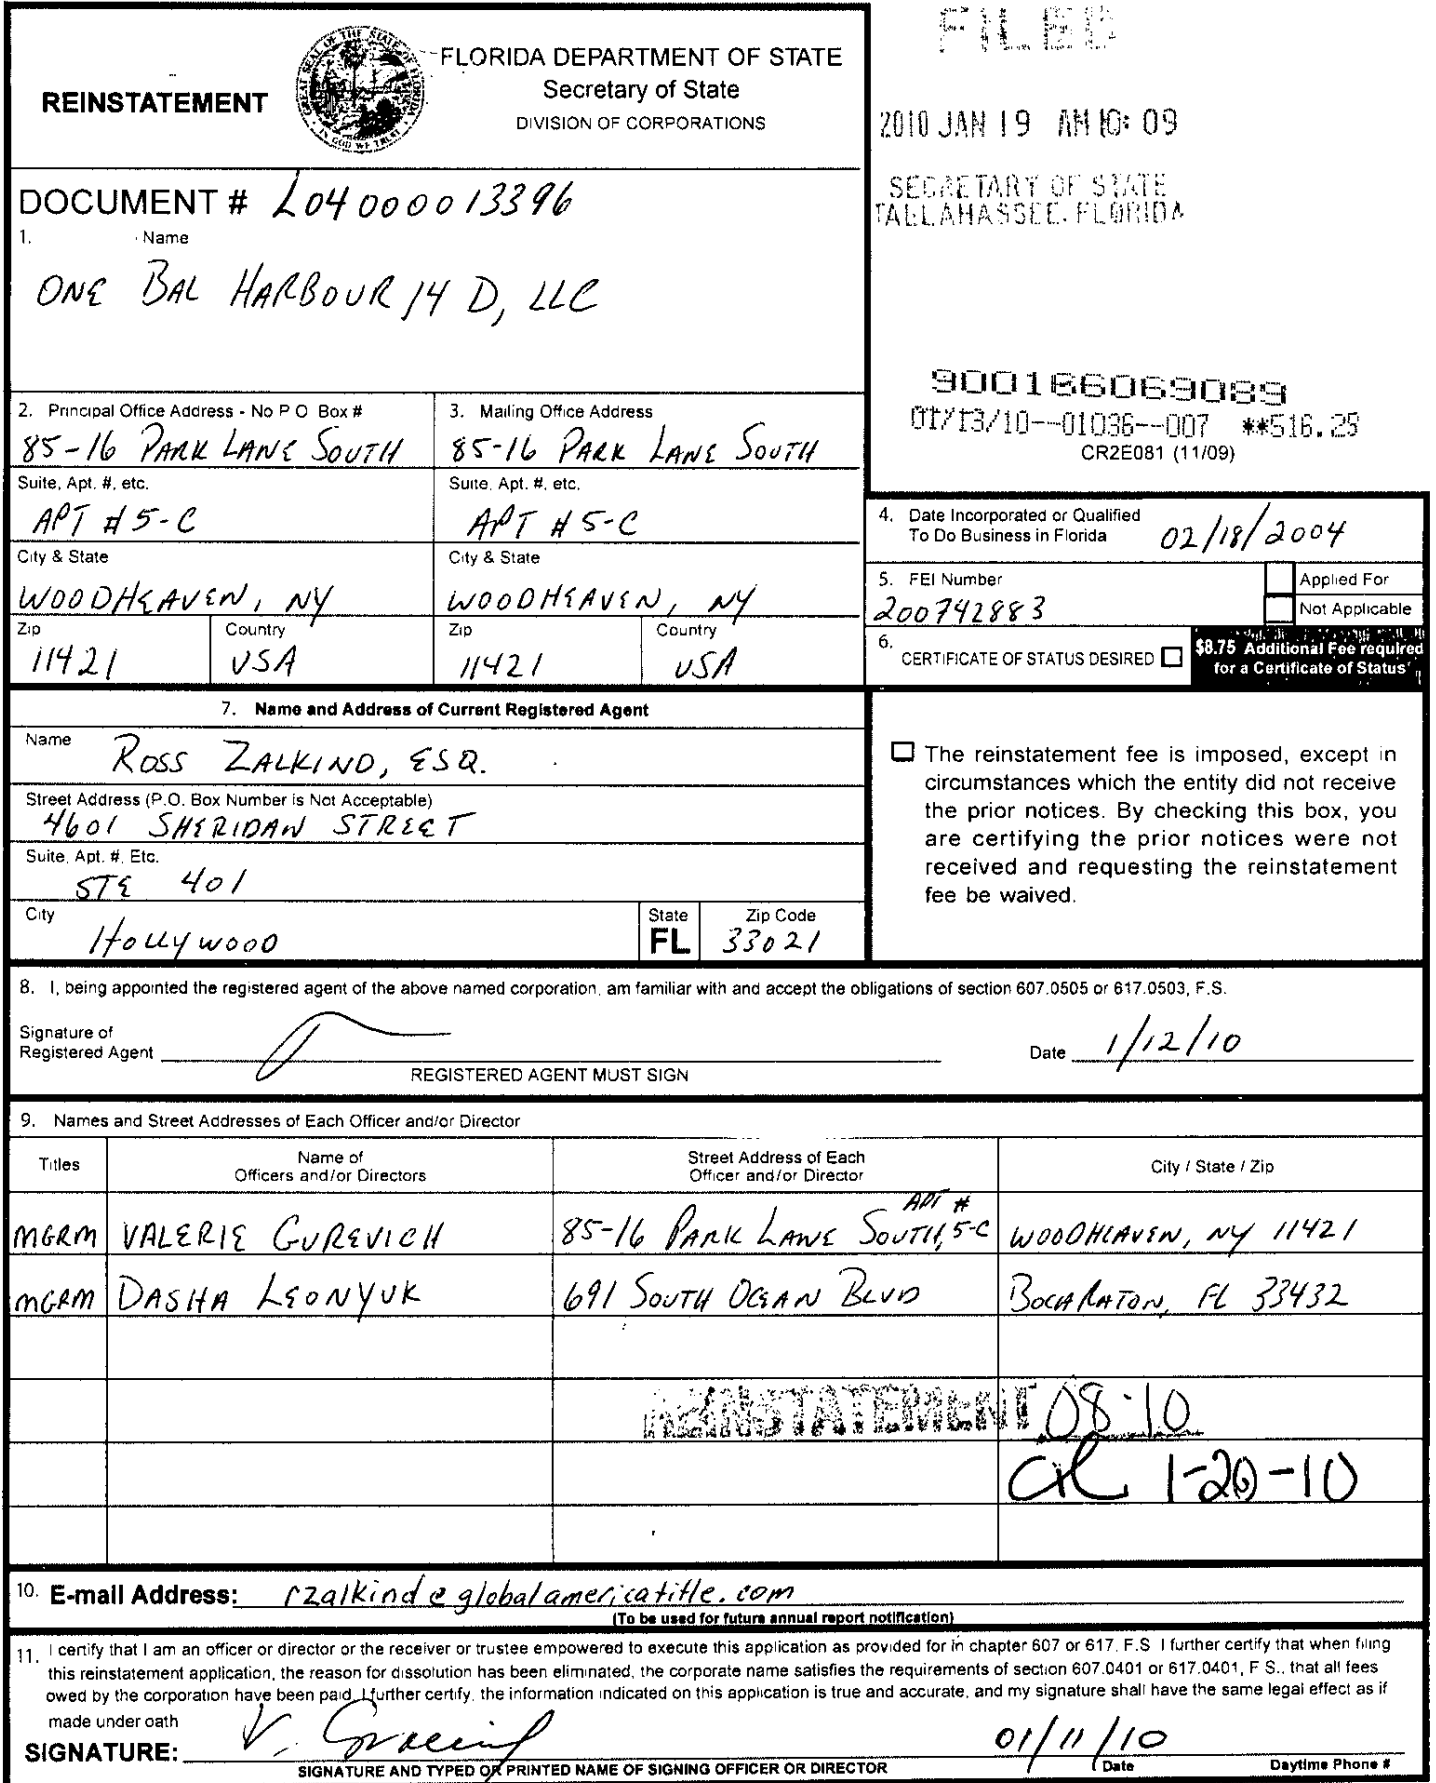 FILED
REINSTATEMENT
FLORIDA DEPARTMENT OF STATE
Secretary of State
DIVISION OF CORPORATIONS
2010 JAN 19 AM 10: 09
SECRETARY OF STATE
TALLAHASSEE, FLORIDA
DOCUMENT # L04000013396
1. Name
ONE BAL HARBOUR 14 D, LLC
900166069089
01/13/10--01036--007 **516.25
CR2E081 (11/09)
2. Principal Office Address - No P O Box #
85-16 PARK LANE SOUTH
Suite, Apt. #, etc.
APT #5-C
City & State
WOODHEAVEN, NY
Zip
11421
Country
USA
3. Mailing Office Address
85-16 PARK LANE SOUTH
Suite, Apt. #, etc.
APT #5-C
City & State
WOODHEAVEN, NY
Zip
11421
Country
USA
4. Date Incorporated or Qualified
To Do Business in Florida 02/18/2004
5. FEI Number
200742883
Applied For
Not Applicable
6.
CERTIFICATE OF STATUS DESIRED
$8.75 Additional Fee required
for a Certificate of Status
7. Name and Address of Current Registered Agent
Name ROSS ZALKIND, ESQ.
Street Address (P.O. Box Number is Not Acceptable)
4601 SHERIDAN STREET
Suite, Apt. #, Etc.
STE 401
City
HOLLYWOOD
State
FL
Zip Code
33021
The reinstatement fee is imposed, except in
circumstances which the entity did not receive
the prior notices. By checking this box, you
are certifying the prior notices were not
received and requesting the reinstatement
fee be waived.
8. I, being appointed the registered agent of the above named corporation, am familiar with and accept the obligations of section 607.0505 or 617.0503, F.S.
Signature of
Registered Agent
Date 1/12/10
REGISTERED AGENT MUST SIGN
9. Names and Street Addresses of Each Officer and/or Director
Titles
Name of
Officers and/or Directors
Street Address of Each
Officer and/or Director
City / State / Zip
MGRM VALERIE GUREVICH 85-16 PARK LANE SOUTH, APT # 5-C WOODHEAVEN, NY 11421
MGRM DASHA LEONYUK 691 SOUTH OCEAN BLVD BOCA RATON, FL 33432
REINSTATEMENT 08-10
1-20-10
10. E-mail Address: rzalkind@globalamericatitle.com
(To be used for future annual report notification)
11. I certify that I am an officer or director or the receiver or trustee empowered to execute this application as provided for in chapter 607 or 617, F.S I further certify that when filing
this reinstatement application, the reason for dissolution has been eliminated, the corporate name satisfies the requirements of section 607.0401 or 617.0401, F S., that all fees
owed by the corporation have been paid. I further certify, the information indicated on this application is true and accurate, and my signature shall have the same legal effect as if
made under oath
SIGNATURE:
01/11/10
SIGNATURE AND TYPED OR PRINTED NAME OF SIGNING OFFICER OR DIRECTOR
Date
Daytime Phone #